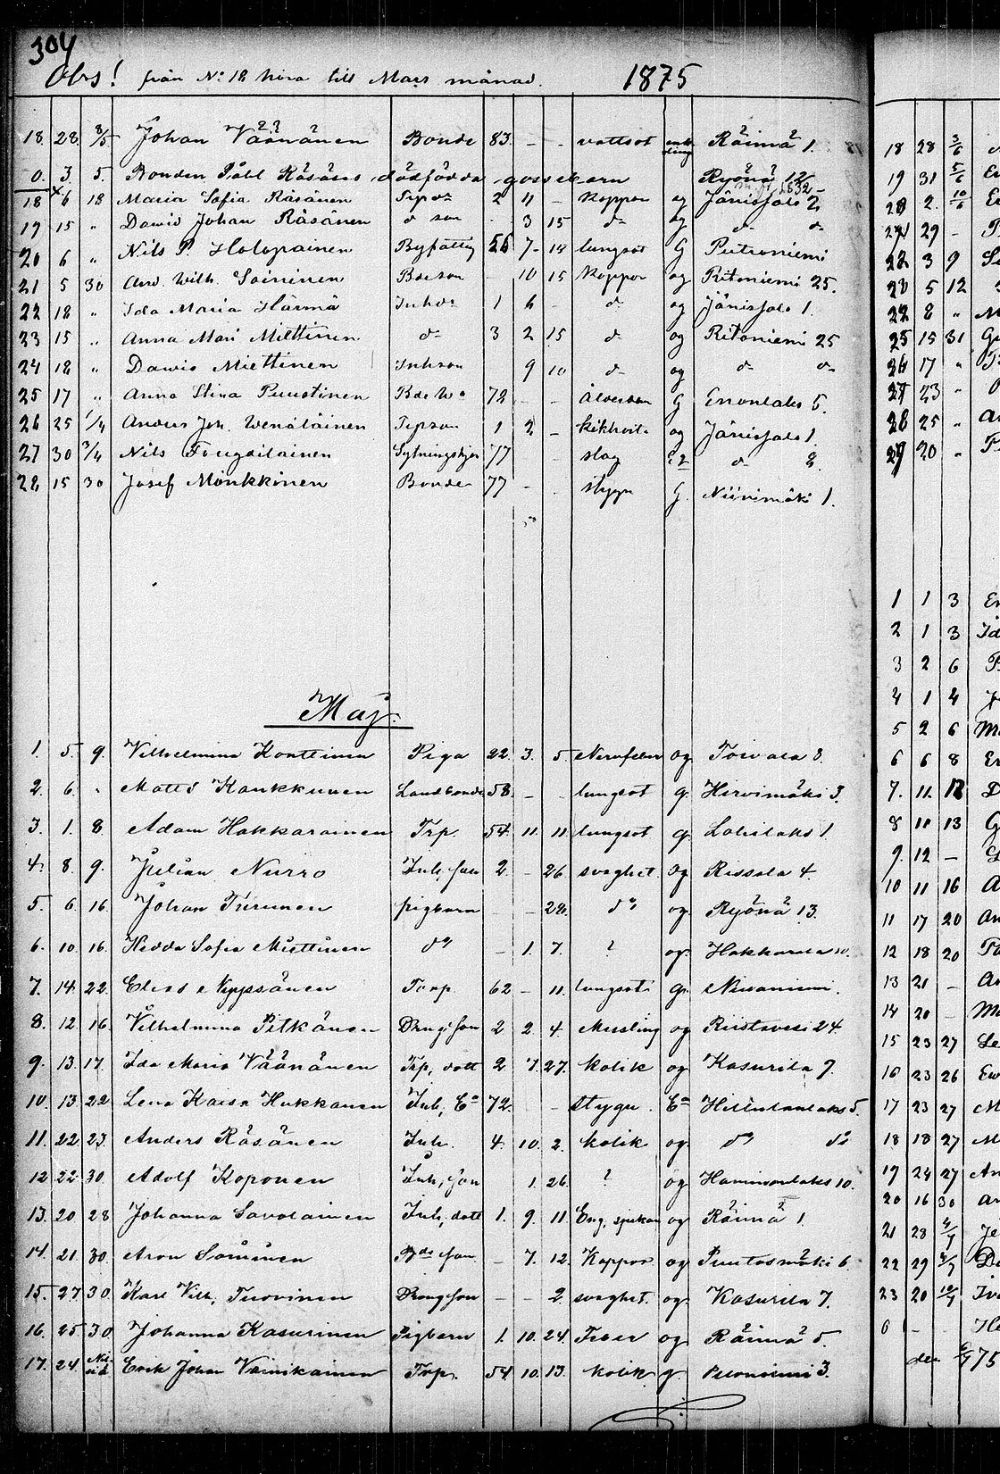 304
Obs! från No 18 höra till Mars månad. 1875
18. 28. 3/5 Johan Väänänen Bonde 83. - - vattsot Räimä 1.
0. 3. 5. Bonden Påhl Räsänens dödfödda gossebarn Ryönä 12
18 6 18 Maria Sofia Räsänen 2 11 - Koppor og Jänissalo 2
19 15 " Dawid Johan Räsänen d son 3 15 d og d d
20 6 " Nils P. Holopainen 56 7 - 14 lungsot G
21 5 30 And. Wilh. Soininen Bdeson - 10 15 Koppor og Ritoniemi 25.
22 18 " Ida Maria Härmä Inhdr 1 6 - d og Jänissalo 1.
23 15 " Anna Mari Miettinen d 3 2 15 d og Ritoniemi 25
24 18 " Dawid Miettinen Inhson 9 10 d og d d
25 17 " Anna Stina Puustinen 72 - - Ålderdom G Enonlaks 5.
26 25 1/4 Anders Joh. Wenäläinen Trpson 1 2 - kikhosta og Jänissalo 1.
27 30 3/4 Nils 77 - - slag d 2.
28 15 30 Josef Mönkkönen Bonde 77 - - stygn G. Niinimäki 1.
Maj.
1. 5. 9. Vilhelmina Konttinen Piga 22. 3. 5. Nervfeber og Toivala 8.
2. 6. " Matts Kankkunen Landbonde 58. - - lungsot g. Hirvimäki 3.
3. 1. 8. Adam Hakkarainen Trp. 54. 11. 11 lungsot g. 1.
4. 8. 9. Julian Nurro Inh. son 2. - 26 svaghet og Rissala 4.
5. 6. 16. Johan Turunen pigbarn - - 28. do og Ryönä 13.
6. 10. 16. Hedda Sofia Miettinen do - 1. 7. ? og Hakkarala 10.
7. 14. 22. Elias Nyyssönen Torp. 62 - 11. lungsot g.
8. 12 16. Vilhelmina Pitkänen Dreng. son 2 2 4 Messling og Riistavesi 24.
9. 13. 17. Ida Maria Väänänen Trp, dott 2 7. 27. kolik og Kasurila 7.
10. 13 22. Lena Kaisa Hukkanen Inh, Ea 72. - - stygn. Ea 5.
11. 22 23. Anders Räsänen Inh. 4. 10. 2. kolik og do do
12 22. 30. Adolf Koponen Inh, son 1. 26. ? og 10.
13. 20 28 Johanna Savolainen Inh, dott 1. 9. 11 Eng. sjukan og Räimä 1.
14. 21. 30. Aron Soininen Bde son - 7. 12. Koppor og 6
15. 27 30. Karl Vilh. Tuovinen Drengson - - 2 svaghet og Kasurila 7.
16. 25 30. Johanna Kasurinen Pigbarn 1. 10. 24. Feber og Räimä 5
17. 24 Erik Johan Vainikainen Trp. 54 10. 13. kolik g 3.
18 28 3/6
19 31 5/6
20 2. 10/6
21 29 -
22 3 9
23 5 12
24 8 "
25 15 31
26 17 "
27 23 "
28 25 "
29 20 "
1 1 3
2 1 3
3 2 6
4 1 4
5 2 6
6 6 8
7. 11. 12
8 11 13
9. 12 -
10 11 16
11 17 20
12 18 20
13 21 -
14 20 -
15 23 27
16 23 26
17 23 27
18 18 27
19 24 27
20 16 30
21 28
22 29
23 20
0 - -
den 75